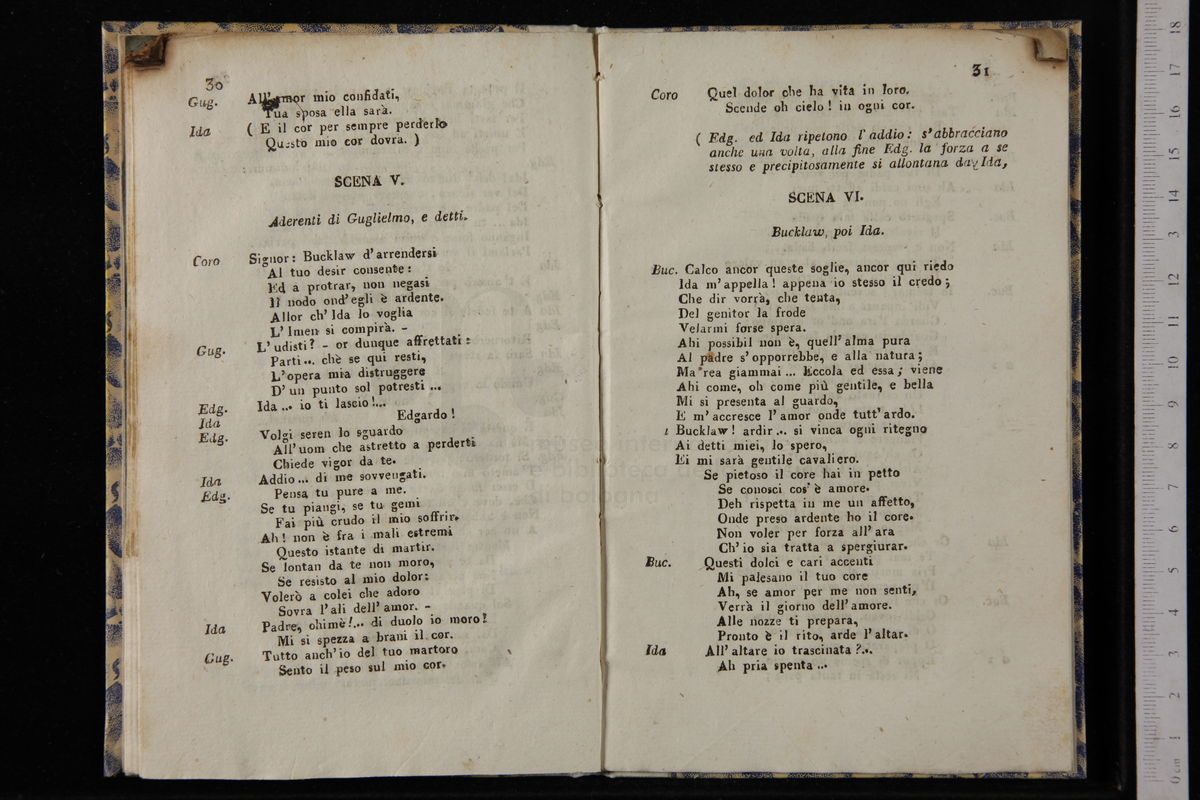 30
Gug. All' amor mio confidati,
Tua sposa ella sarà.
Ida ( E il cor per sempre perderlo
Questo mio cor dovra. )
SCENA V.
Aderenti di Guglielmo, e detti.
Coro Signor: Bucklaw d'arrendersi
Al tuo desir consente:
Ed a protrar, non negasi
Il nodo ond' egli è ardente.
Allor ch' Ida lo voglia
L' Imen si compirà. -
Gug. L' udisti? - or dunque affrettati:
Parti... chè se qui resti,
L'opera mia distruggere
D' un punto sol potresti ...
Edg. Ida ... io ti lascio!...
Ida Edgardo!
Edg. Volgi seren lo sguardo
All'uom che astretto a perderti
Chiede vigor da te.
Ida Addio... di me sovvengati.
Edg. Pensa tu pure a me.
Se tu piangi, se tu gemi
Fai più crudo il mio soffrir.
Ah! non è fra i mali estremi
Questo istante di martir.
Se lontan da te non moro,
Se resisto al mio dolor:
Volerò a colei che adoro
Sovra l'ali dell' amor. -
Ida Padre, ohimè!... di duolo io moro!
Mi si spezza a brani il cor.
Gug. Tutto anch' io del tuo martoro
Sento il peso sul mio cor.
31
Coro Quel dolor che ha vita in loro.
Scende oh cielo! in ogni cor.
( Edg. ed Ida ripetono l' addio: s'abbracciano
anche una volta, alla fine Edg. la forza a se
stesso e precipitosamente si allontana da Ida,
SCENA VI.
Bucklaw, poi Ida.
Buc. Calco ancor queste soglie, ancor qui riedo
Ida m' appella! appena io stesso il credo;
Che dir vorrà, che tenta,
Del genitor la frode
Velarmi forse spera.
Ahi possibil non è, quell' alma pura
Al padre s' opporrebbe, e alla natura;
Ma rea giammai ... Eccola ed essa; viene
Ahi come, oh come più gentile, e bella
Mi si presenta al guardo,
E m' accresce l' amor onde tutt' ardo.
ι Bucklaw! ardir ... si vinca ogni ritegno
Ai detti miei, lo spero,
Ei mi sarà gentile cavaliero.
Se pietoso il core hai in petto
Se conosci cos' è amore.
Deh rispetta in me un affetto,
Onde preso ardente ho il core.
Non voler per forza all' ara
Ch' io sia tratta a spergiurar.
Buc. Questi dolci e cari accenti
Mi palesano il tuo core
Ah, se amor per me non senti,
Verrà il giorno dell' amore.
Alle nozze ti prepara,
Pronto è il rito, arde l' altar.
Ida All' altare io trascinata?...
Ah pria spenta ...